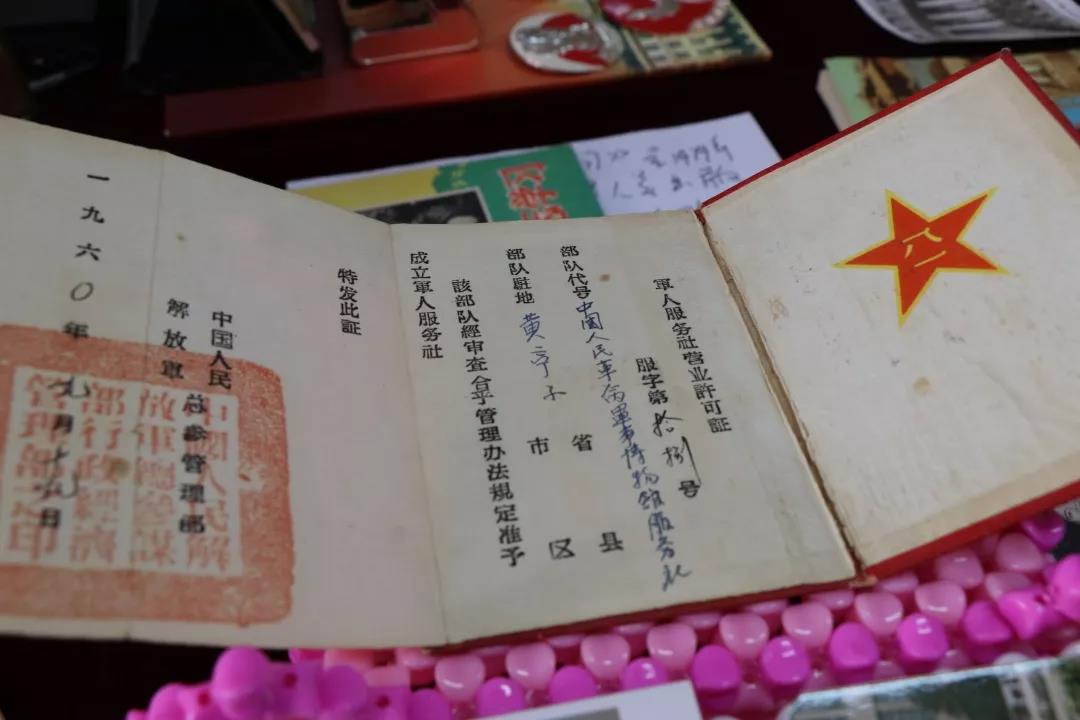 八一
軍人服务社营业許可証
服字第拾捌号
部队代号中国人民革命軍事博物館服务社
省 县
部队駐地 黄亭子 市 区
該部队經审查合乎管理办法規定准予
成立軍人服务社
特发此証
中国人民
解放軍总参管理部
一九六〇年九月十九日
中國人民解
放軍總參謀
部行政經濟
管理部之印